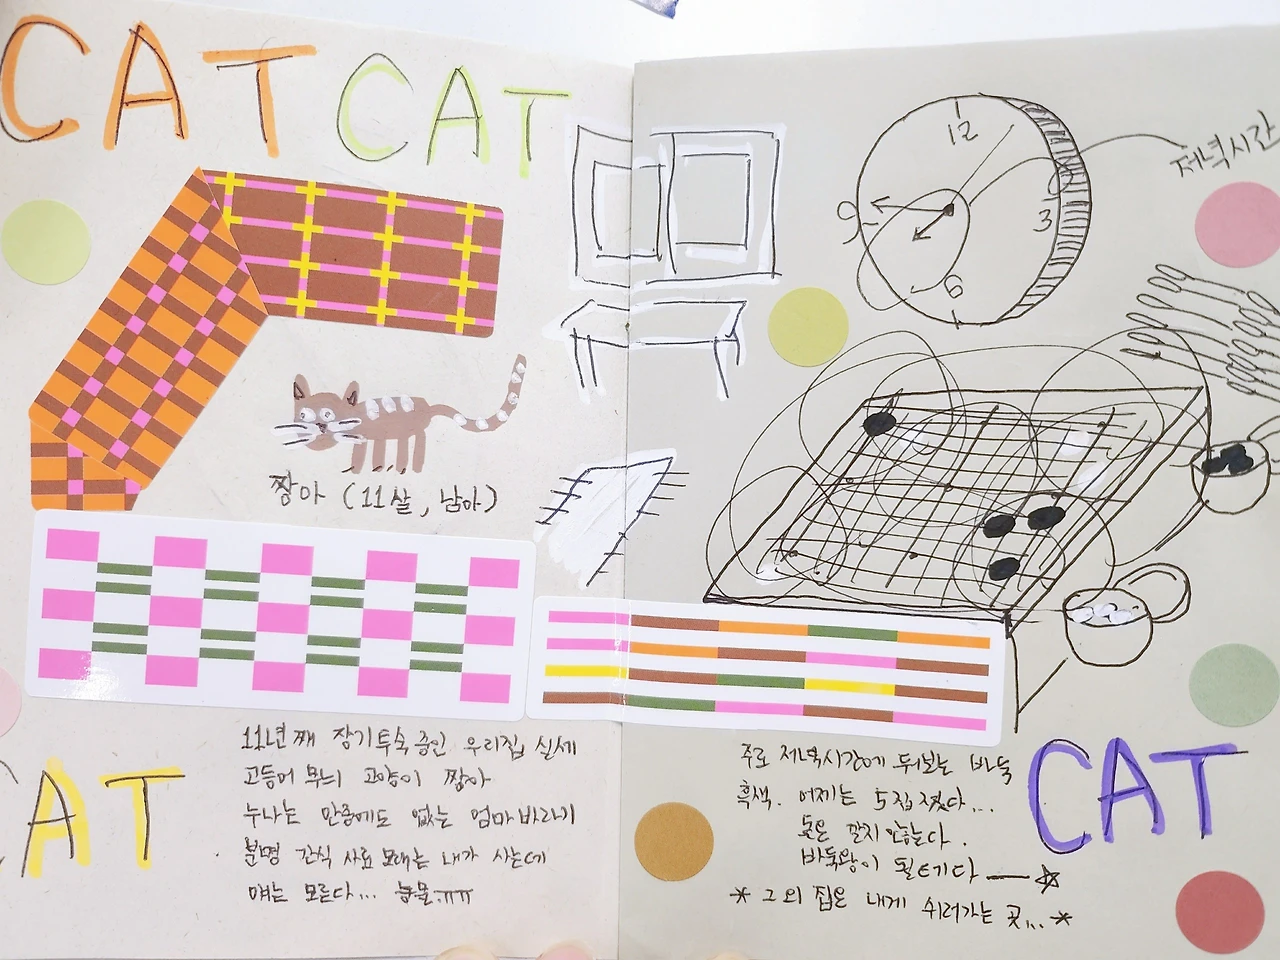 CAT CAT
짱아 (11살, 남아)
11년째 장기투숙중인 우리집 실세
고등어 무늬 고양이 짱아
누나는 안중에도 없는 엄마바라기
분명 간식 사료 모래는 내가 사는데
얘는 모른다... 눈물.ㅠㅠ
CAT
12
3
6
9
저녁시간
주로 저녁시간에 두보는 바둑
흑색. 어제는 5집 졌다...
돈은 걸지 않는다.
바둑왕이 될테다
* 그 외 집은 내게 쉬러가는 곳... *
CAT